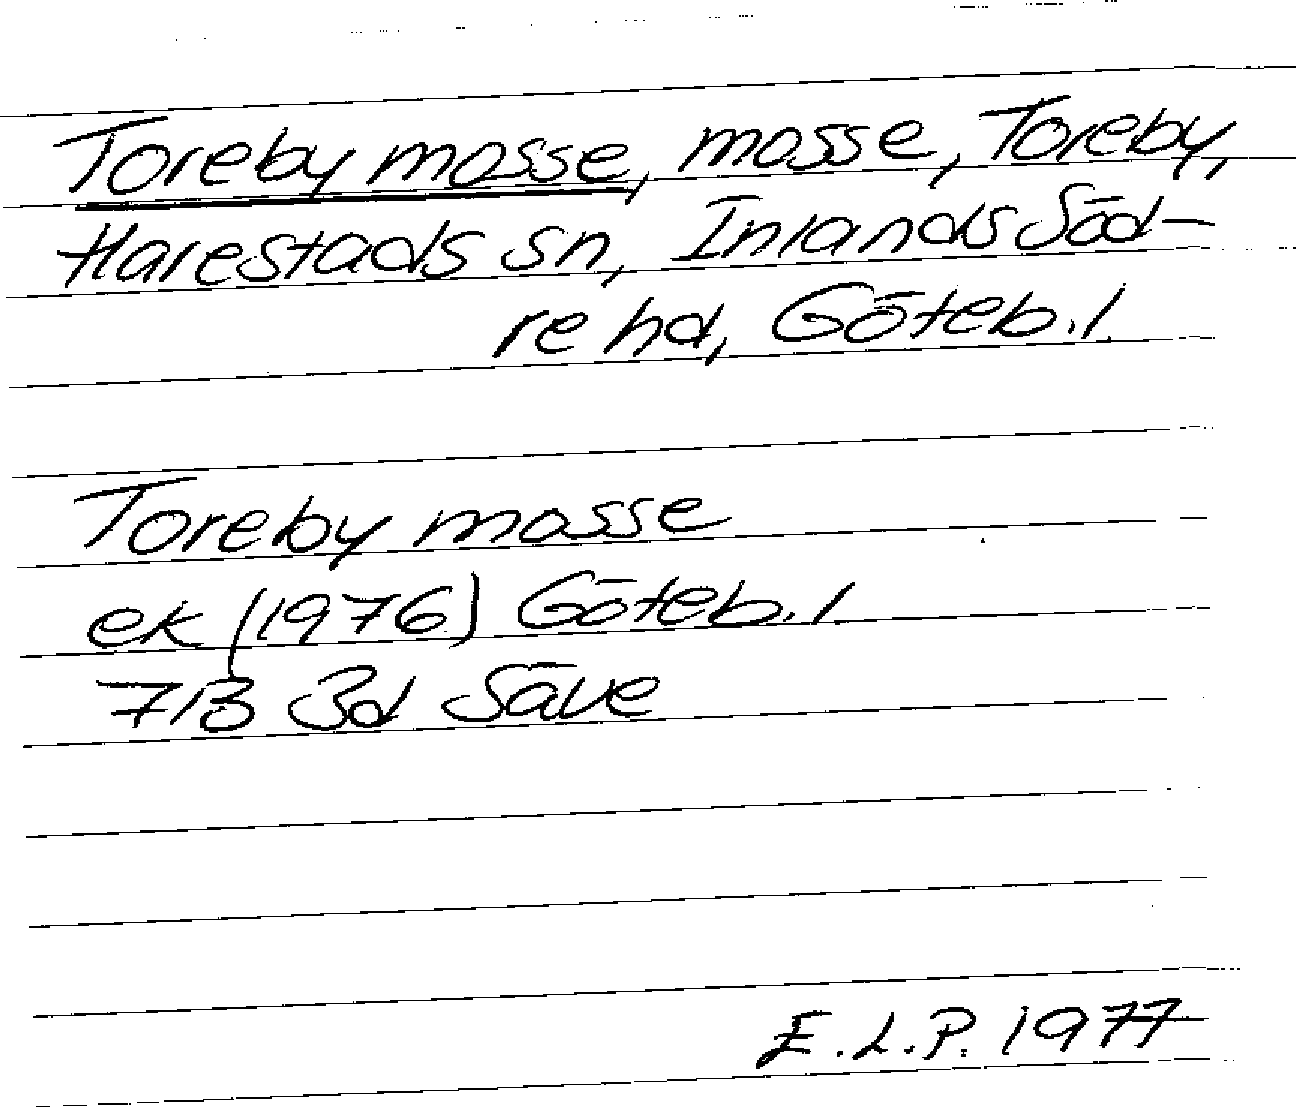 Toreby mosse, mosse, Toreby,
Harestads sn, Inlands Söd-
re hd, Göteb. l.
Toreby mosse
ek (1976) Göteb. l
7B 3d Säve
E.L.P. 1977